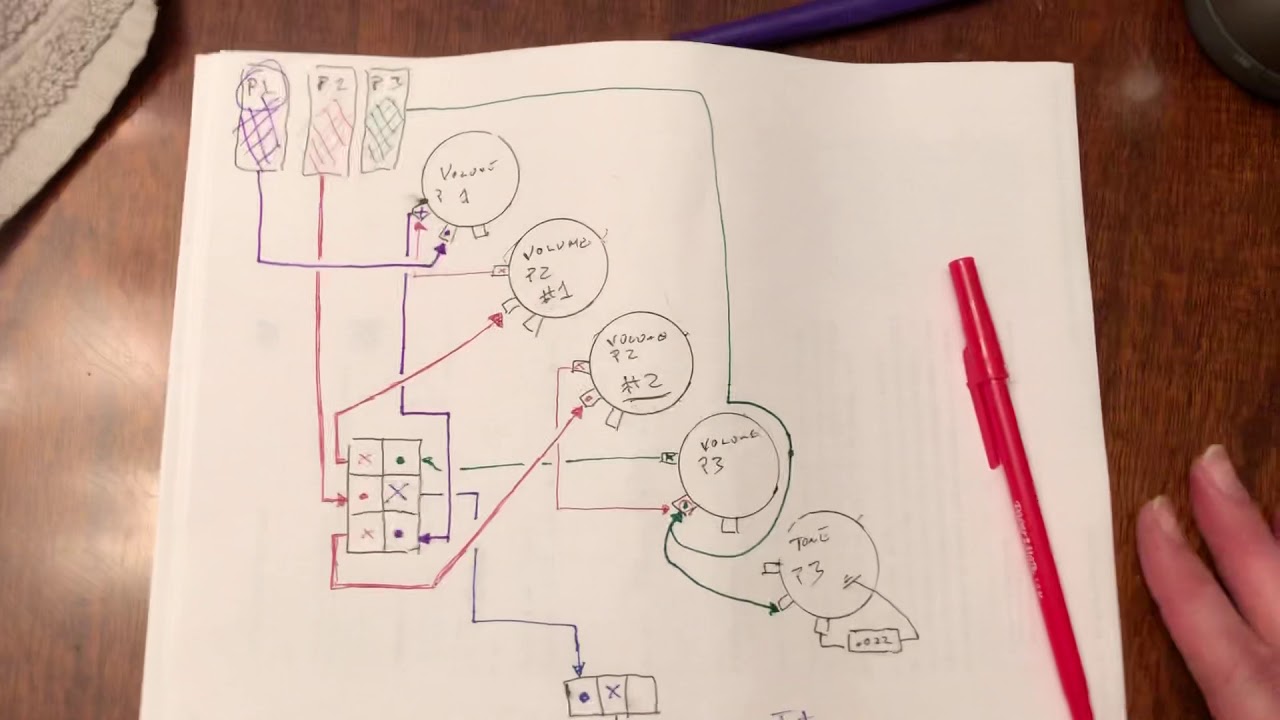 P1
P2
P3
VOLUME
P 1
VOLUME
P2
#1
VOLUME
P2
#2
VOLUME
P3
X
X
X
TONE
P3
.022
X